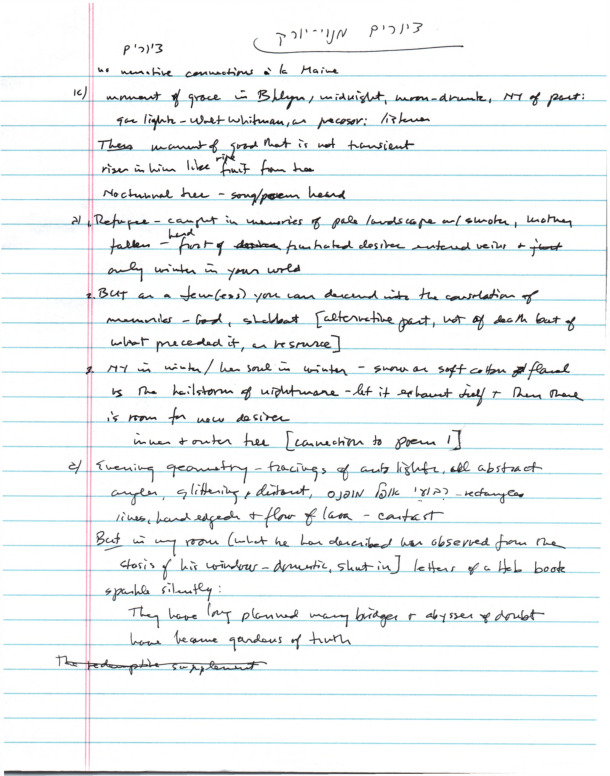 ציורים מניו-יורק
ציורים
no narrative connections à la Maine
1c) moment of grace in Bklyn, midnight, moon-drunk, NY of past:
gas lights – Walt Whitman, as precursor; listener
These moment of good that is not transient
rises in him like ripe fruit from tree
Nocturnal tree – song/poem heard
2) 1. Refugee – caught in memories of pale landscape w/ smoke, mother
fallen – hard frost of desires frustrated desires entered veins + just
only winter in your world
2. But as a Jew(ess) you can descend into the consolation of
memories – God, shabbat [alternative past, not of death but of
what preceded it, as resource]
3. NY in winter/ her soul in winter – snow as soft cotton floral
vs the hailstorm of nightmare – let it exhaust itself + then there
is room for new desires
inner + outer tree [connection to poem 1]
Evening geometry – tracings of auto lights, all abstract
angles, glittering + distant, – rectangles
lines, hard edged + flow of lava – contrast
But in my room (what he has described was observed from the
stasis of his window – domestic, shut in] letters of a Heb book
sparkle silently:
They have long planned many bridges + abysses of doubt
have become gardens of truth
The redemptive supplement